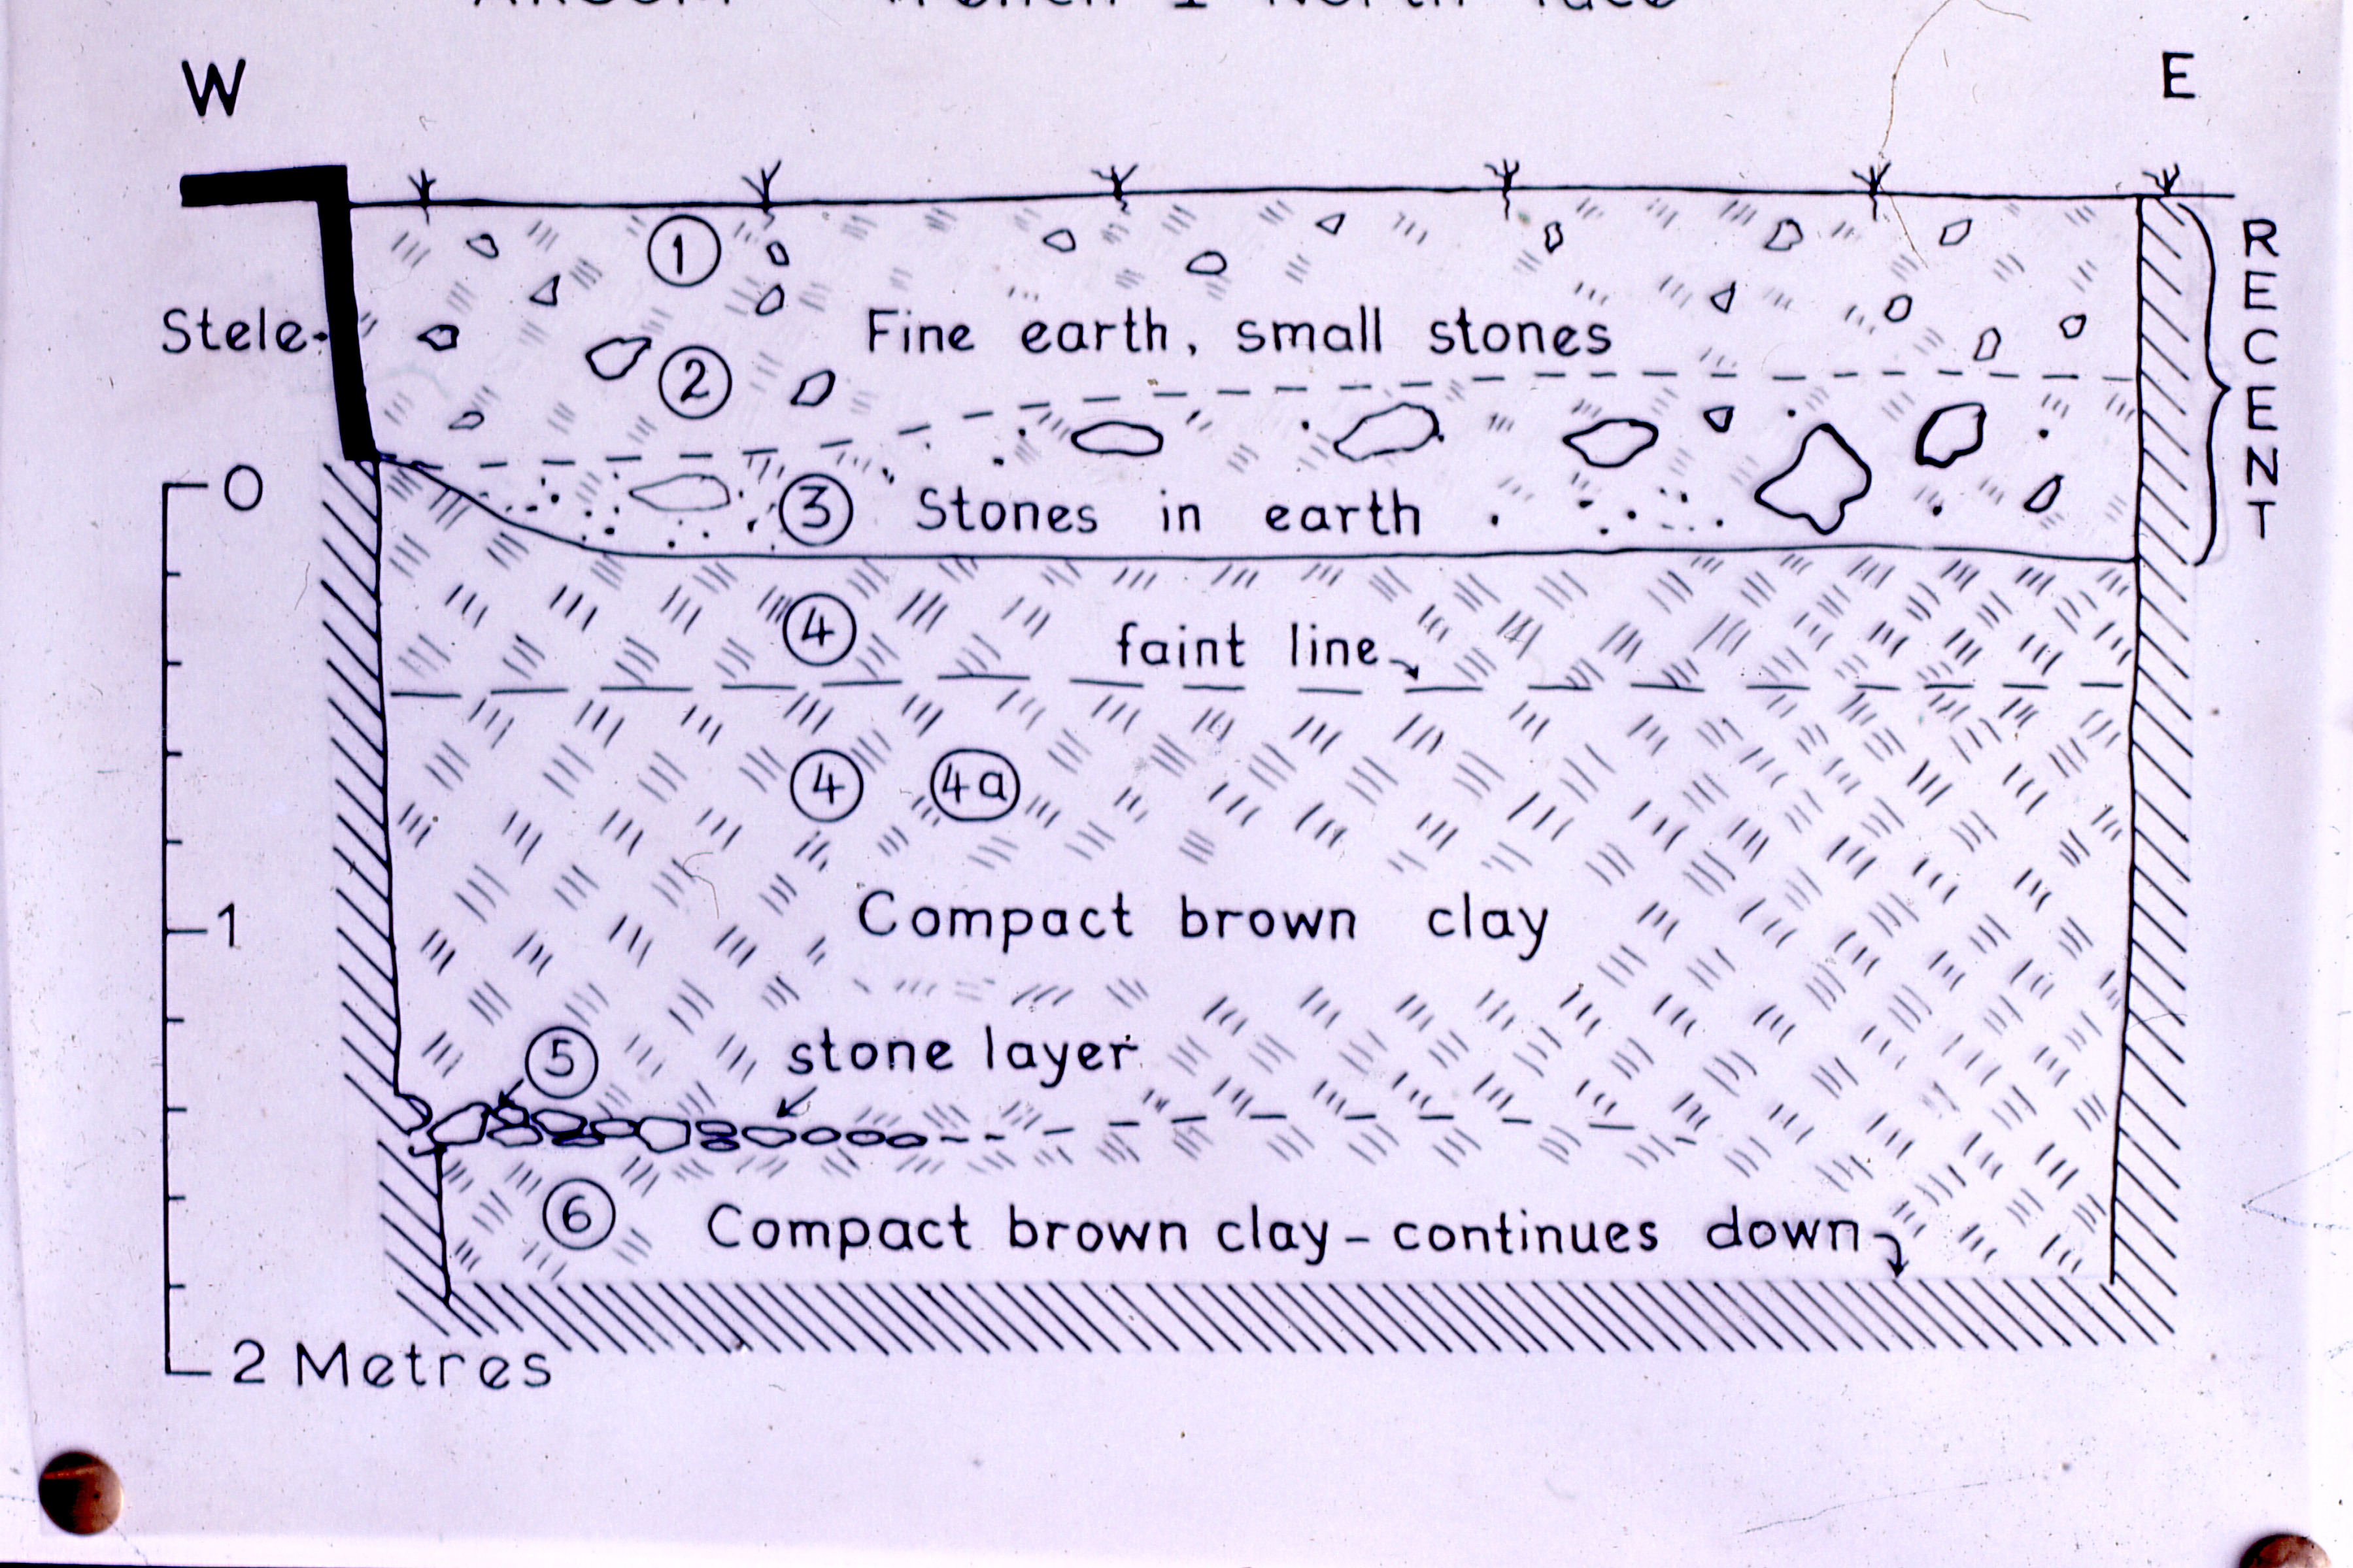 Trench 1 North face
W E
1
Stele
Fine earth, small stones
2
RECENT
0
3 Stones in earth
4
faint line
4 4a
1
Compact brown clay
5
stone layer
6
Compact brown clay - continues down
2 Metres